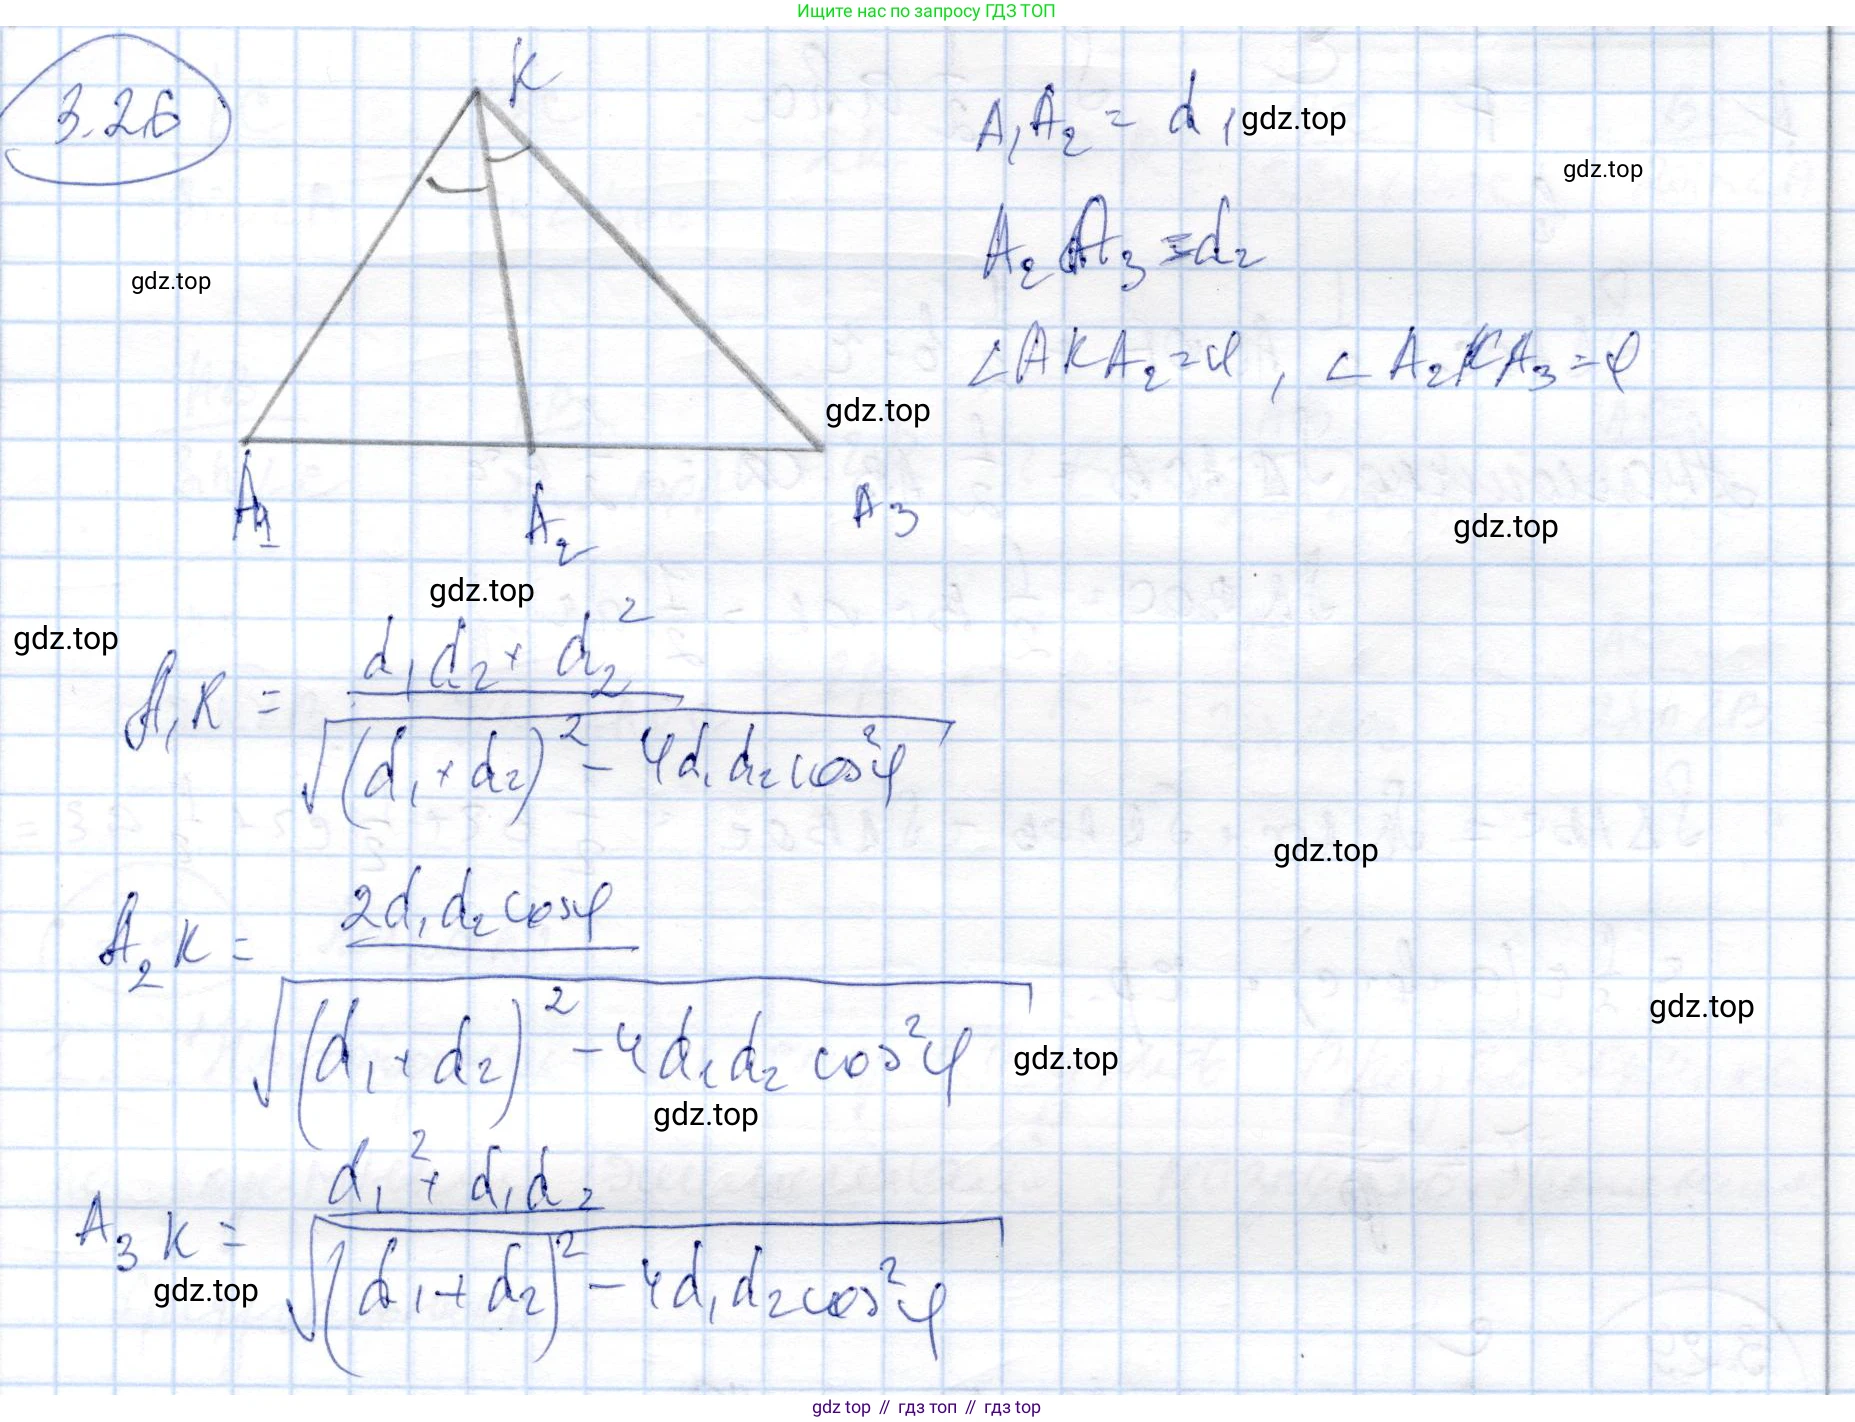 Ищите нас по запросу ГДЗ ТОП
3.26
K
A₁A₂ = d₁
gdz.top
gdz.top
A₂A₃ = d₂
gdz.top
∠AKA₂ = φ, ∠A₂KA₃ = φ
gdz.top
A₁ A₂ A₃
gdz.top
gdz.top
gdz.top
A₁K = (d₁d₂ + d₂²) / √((d₁ + d₂)² - 4d₁d₂cos²φ)
gdz.top
A₂K = 2d₁d₂cosφ / √((d₁ + d₂)² - 4d₁d₂cos²φ)
gdz.top
gdz.top
gdz.top
A₃K = (d₁² + d₁d₂) / √((d₁ + d₂)² - 4d₁d₂cos²φ)
gdz.top
gdz top // гдз топ // гдз top